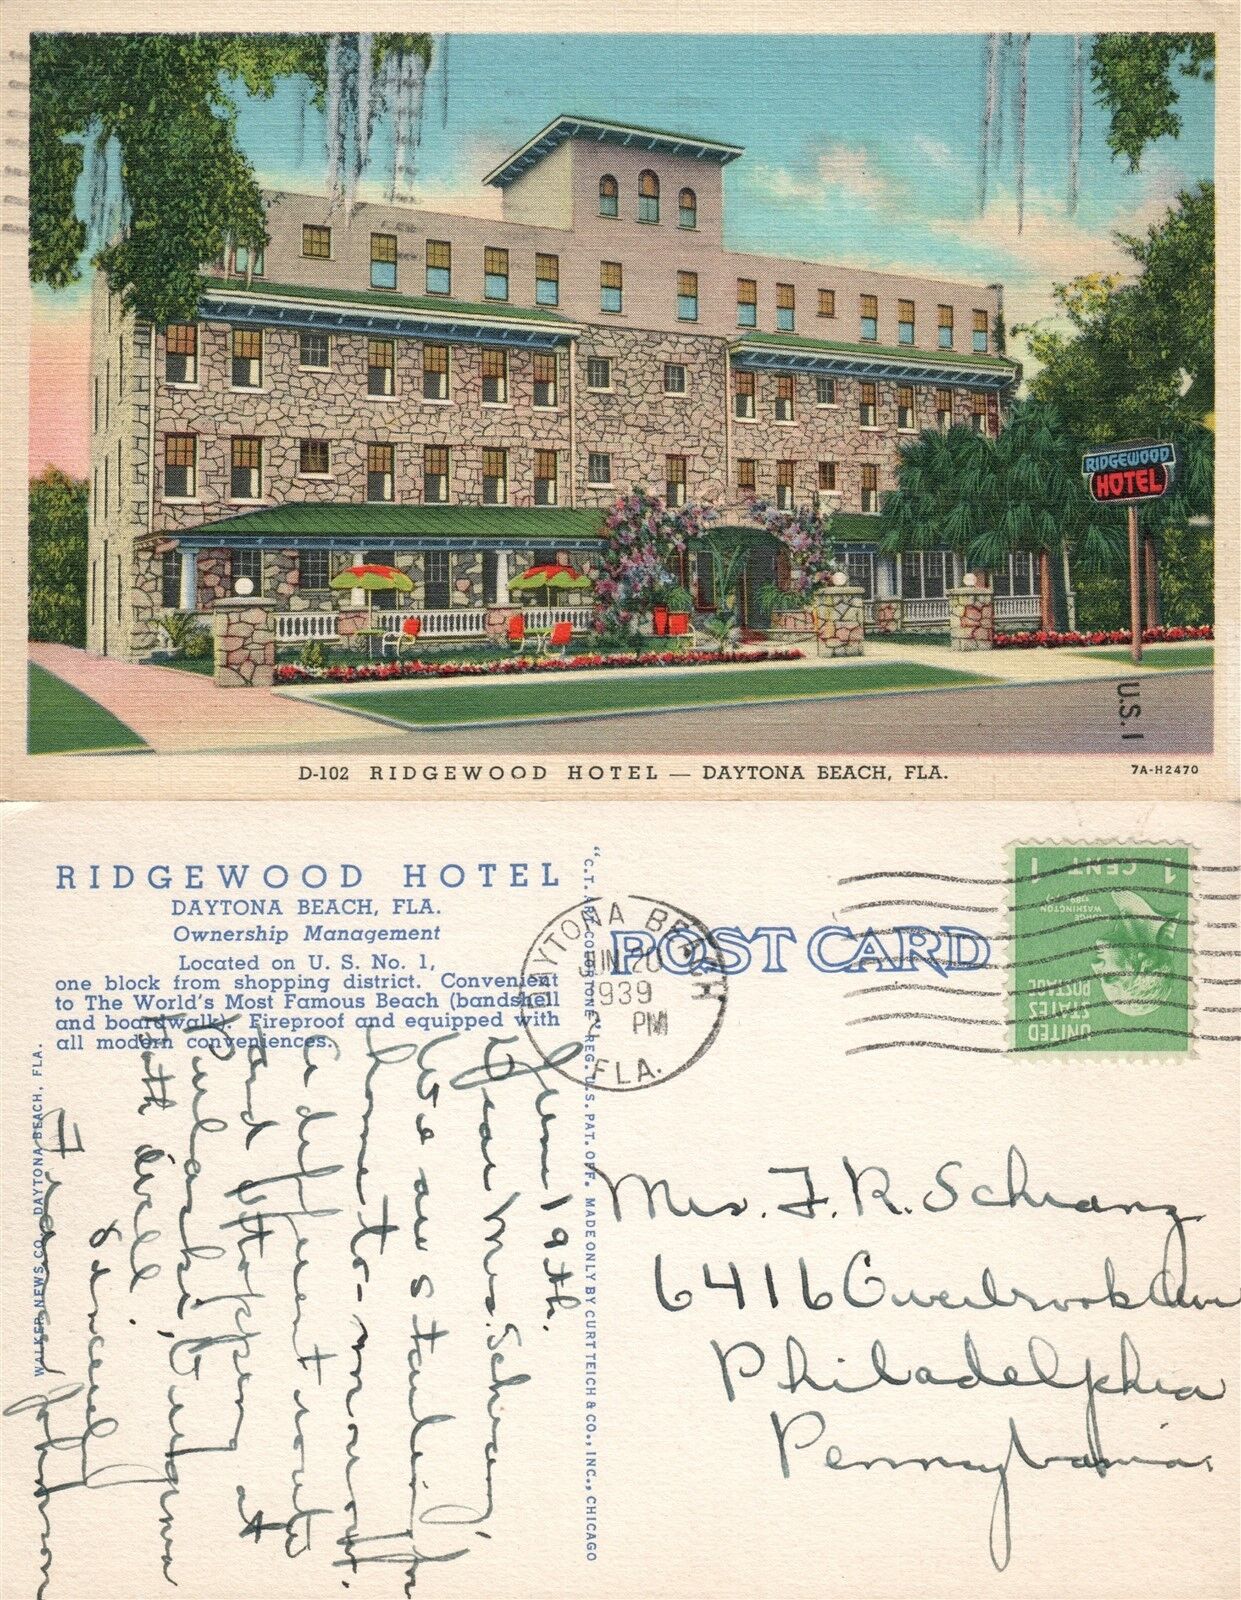 RIDGEWOOD
HOTEL
U.S. 1
D-102 RIDGEWOOD HOTEL — DAYTONA BEACH, FLA.
7A-H2470
RIDGEWOOD HOTEL
DAYTONA BEACH, FLA.
Ownership Management
Located on U. S. No. 1,
one block from shopping district. Convenient
to The World's Most Famous Beach (bandshell
and boardwalk). Fireproof and equipped with
all modern conveniences.
WALKER NEWS CO., DAYTONA BEACH, FLA.
"C.T. ART-COLORTONE" REG. U.S. PAT. OFF. MADE ONLY BY CURT TEICH & CO., INC., CHICAGO
POST CARD
DAYTONA BEACH
JUN 20
1939
PM
FLA.
UNITED
STATES
POSTAGE
WASHINGTON
1 CENT 1
June 19th.
Dear Mrs.
We are
home to-morrow.
a different route
and stopping at
Pulaski, Virginia
Both well.
Sincerely
Johnson
Mrs. F. R. Schranz
6416 Overbrook Ave
Philadelphia
Pennsylvania.